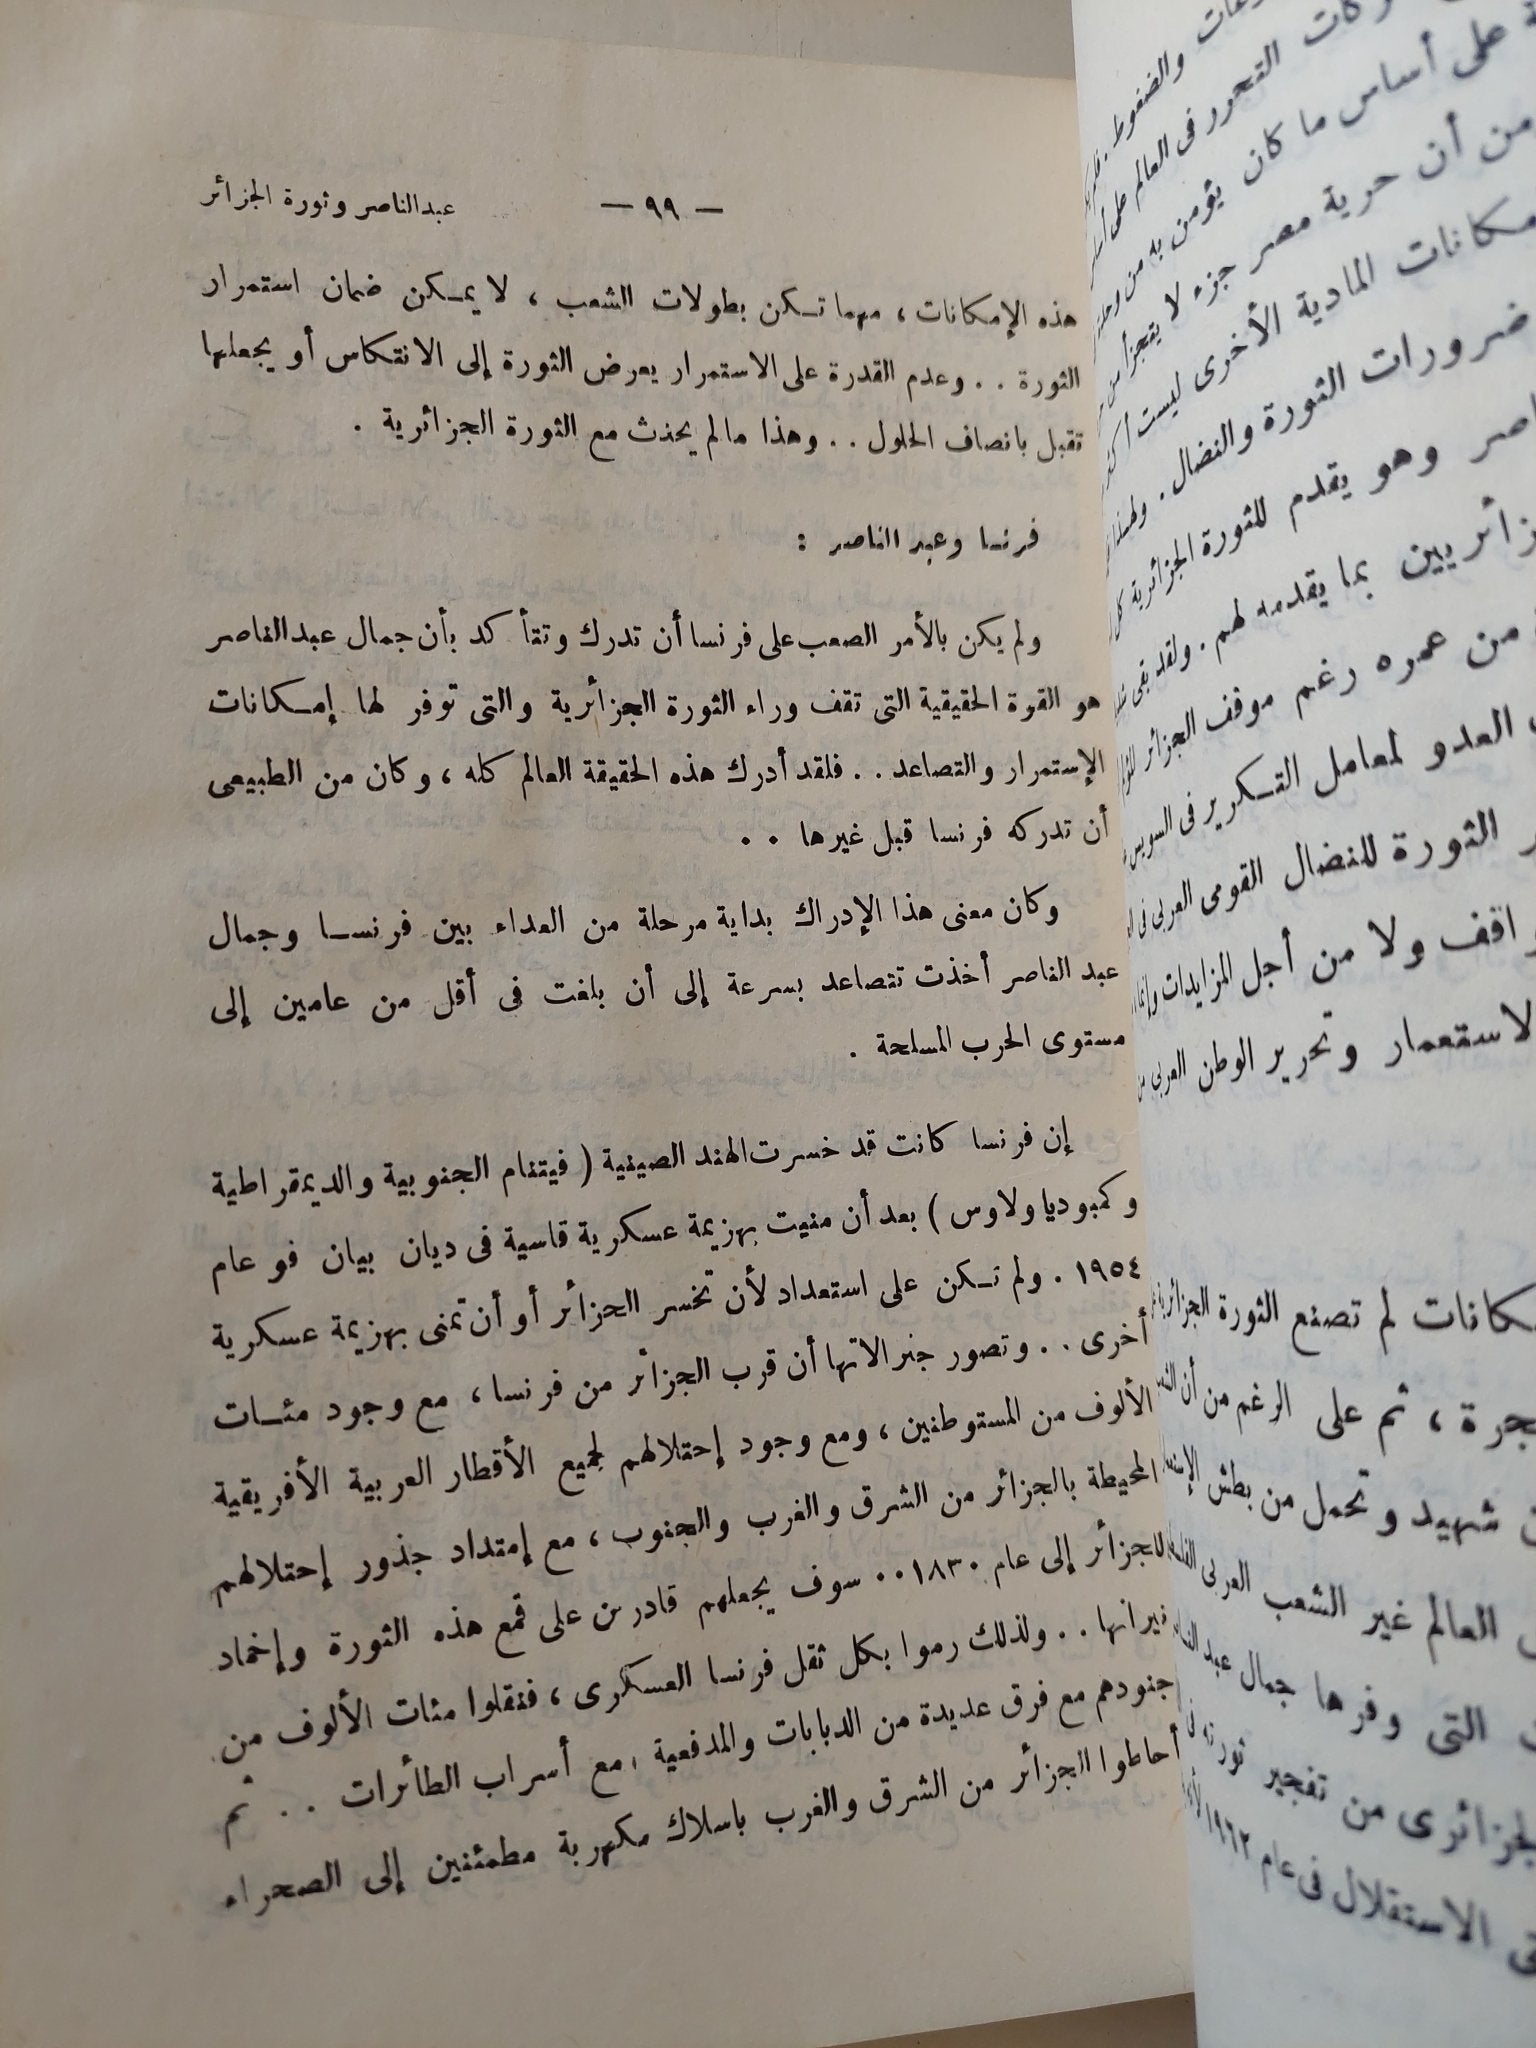 — ٩٩ — عبدالناصر وثورة الجزائر
هذه الإمكانات ، مهما تـكن بطولات الشعب ، لا يمـكن ضمان استمرار
الثورة . . وعدم القدرة على الاستمرار يعرض الثورة إلى الانتكاس أو يجعلها
تقبل بانصاف الحلول . . وهذا مالم يحذث مع الثورة الجزائرية .
فرنسا وعبد الناصر :
ولم يكن بالأمر الصعب على فرنسا أن تدرك وتتأ كد بأن جمال عبدالناصر
هو القوة الحقيقية التى تقف وراء الثورة الجزائرية والتى توفر لها إمـكانات
الإستمرار والتصاعد . . فلقد أدرك هذه الحقيقة العالم كله ، وكان من الطبيعى
أن تدركه فرنسا قبل غيرها . .
وكان معنى هذا الإدراك بداية مرحلة من العداء بين فرنسـا وجمال
عبد الناصر أخذت تتصاعد بسرعة إلى أن بلغت فى أقل من عامين إلى
مستوى الحرب المسلحة .
إن فرنسا كانت قد خسرت الهند الصينية ( فيتنام الجنوبية والديمقراطية
وكمبوديا ولاوس ) بعد أن منيت بهزيمة عسكرية قاسية فى ديان بيان فو عام
١٩٥٤ . ولم تـكن على استعداد لأن تخسر الجزائر أو أن تمنى بهزيمة عسكرية
أخرى . . وتصور جنرالاتها أن قرب الجزائر من فرنسا ، مع وجود مئـات
الألوف من المستوطنين ، ومع وجود إحتلالهم لجميع الأقطار العربية الأفريقية
المحيطة بالجزائر من الشرق والغرب والجنوب ، مع إمتداد جذور إحتلالهم
للجزائر إلى عام ١٨٣٠ . . سوف يجعلهم قادرين على قمع هذه الثورة وإخماد
نيرانها . . ولذلك رموا بكل ثقل فرنسا العسكرى ، فنقلوا مئات الألوف من
جنودهم مع فرق عديدة من الدبابات والمدفعية ، مع أسراب الطائرات . . ثم
أحاطوا الجزائر من الشرق والغرب باسلاك مكهربة مطمئنين إلى الصحراء
والضغوط .
التحرر فى العالم على
على أساس ما كان يؤمن به من
من أن حرية مصر جزء لا يتجزأ من
المادية الأخرى ليست
ضرورات الثورة والنضال .
وهو يقدم للثورة الجزائرية كل
بما يقدمه لهم . ولقد بقى
من عمره رغم موقف الجزائر
العدو لمعامل التـكرير فى السويس
الثورة للنضال القومى العربى فى
ولا من أجل المزايدات
وتحرير الوطن العربى من
لم تصنع الثورة الجزائرية
، ثم على الرغم من أن
شهيد وتحمل من بطش
العالم غير الشعب العربى
التى وفرها جمال عبد
من تفجير ثورته
الاستقلال فى عام ١٩٦٢